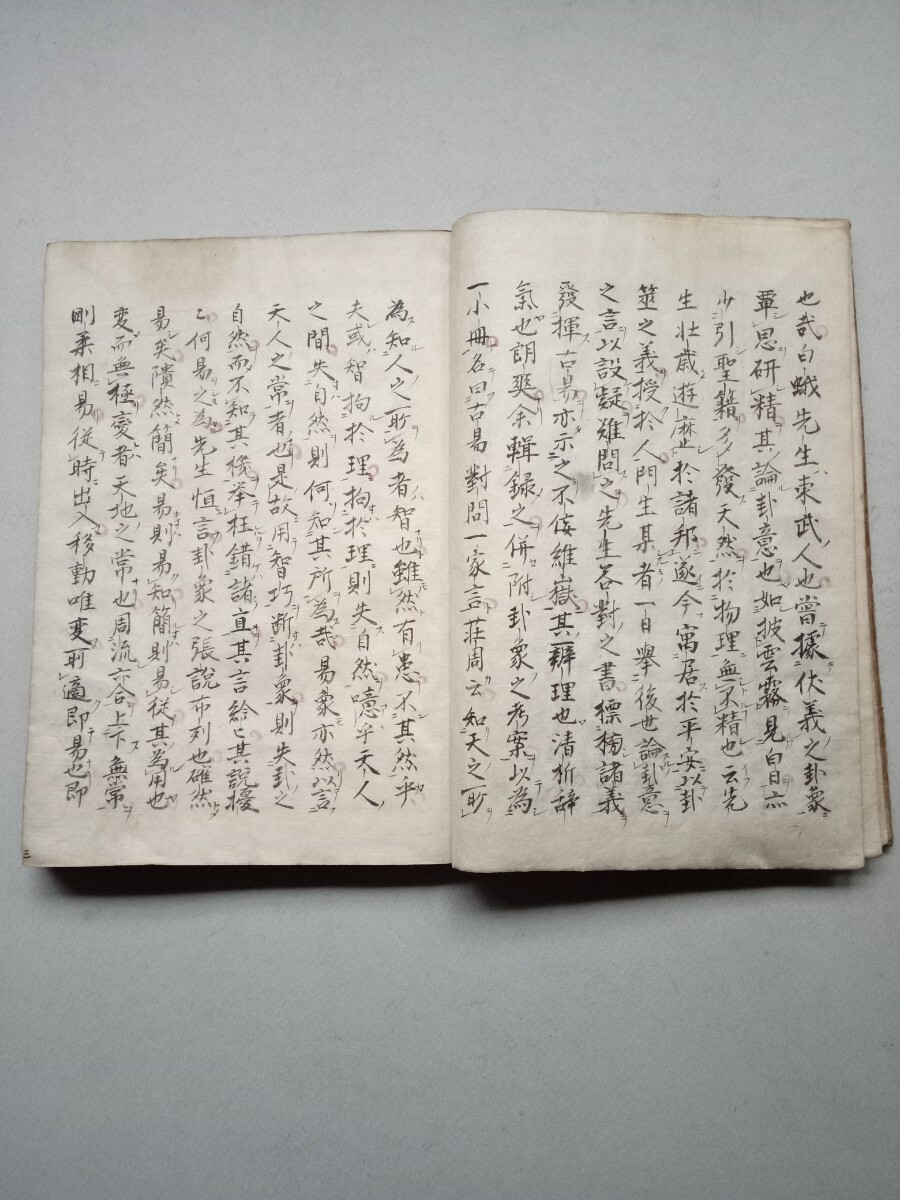 也哉白蛾先生東武人也嘗據伏義之卦象
覃思研精其論卦意也如披雲霧見白日亦
少引聖籍多發天然於物理無不精也云先
生壮歳遊歴於諸邦遂今寓居於平安以卦
筮之義授於人門生某者一日舉後世論卦意
之言以設疑難問之先生答對之書標摘諸義
發揮古易亦示之不佞維嶽其辨理也清析辞
氣也朗爽余輯録之併附卦象之考案以為
一小冊名曰古易對問一家言荘周云知天之所
為知人之所為者智也雖然有患不其然乎
夫或智拘於理拘於理則失自然噫乎天人
之間失自然則何知其所為哉易象亦然以言
天人之常者也是故用智巧断卦象則失卦之
自然而不知其機挙枉錯諸直其言給〻其説擾
〻何易之為先生恒言卦象之張説布列也確然
易矣隤然簡矣易則易知簡則易従其為用也
変而無極変者天地之常也周流六合上下無常
剛柔相易従時出入移動唯変所適即易也即
三